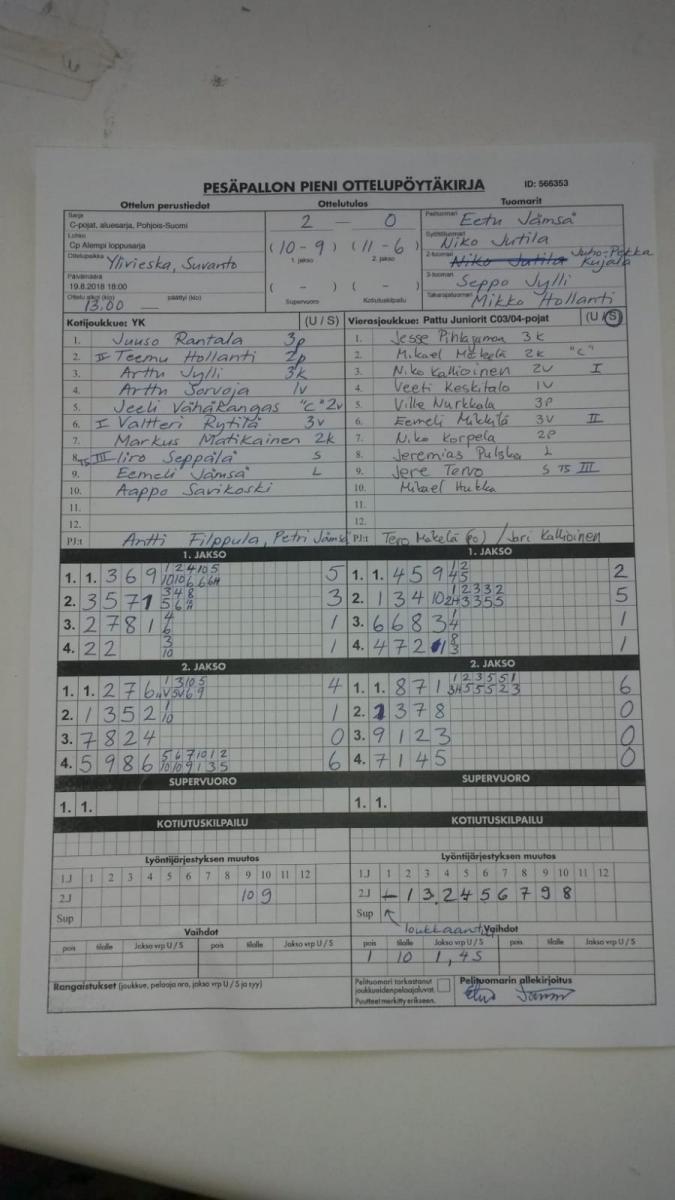 PESÄPALLON PIENI OTTELUPÖYTÄKIRJA ID: 566353
Ottelun perustiedot Ottelutulos Tuomarit
Sarja
C-pojat, aluesarja, Pohjois-Suomi
Lohko
Cp Alempi loppusarja
Ottelupaikka Ylivieska, Suvanto
Päivämäärä
19.8.2018 18:00
Ottelu alkoi (klo) päättyi (klo)
13.00 —
2 — 0
(10-9) (11-6)
1. jakso 2. jakso
( - ) ( - )
Supervuoro Kotiutuskilpailu
Pelituomari Eetu Jämsä
Syöttötuomari Niko Jutila
2-tuomari Niko Jutila Juho-Pekka Kujala
3-tuomari Seppo Jylli
Takarajatuomari Mikko Hollanti
Kotijoukkue: YK (U / S)
1. Juuso Rantala 3p
2. II Teemu Hollanti 2p
3. Arttu Jylli 3k
4. Arttu Sorvoja 1v
5. Jeeli Vähäkangas "C" 2v
6. I Valtteri Rytilä 3v
7. Markus Matikainen 2k
8. TS III Iiro Seppälä S
9. Eemeli Jämsä L
10. Aappo Sarikoski
11.
12.
PJ:t Antti Filppula, Petri Jämsä
Vierasjoukkue: Pattu Juniorit C03/04-pojat (U / S)
1. Jesse Pihlajamaa 3k
2. Mikael Mäkelä 2k "C"
3. Niko Kallioinen 2v I
4. Veeti Keskitalo 1v
5. Ville Nurkkala 3p
6. Eemeli Mikkilä 3v II
7. Niko Korpela 2p
8. Jeremias Pulska L
9. Jere Tervo S TS III
10. Mikael Hukka
11.
12.
PJ:t Tero Mäkelä (PO) / Jari Kallioinen
1. JAKSO
1. 1. 3 6 9 5
2. 3 5 7 1 3
3. 2 7 8 1 1
4. 2 2 1
1. JAKSO
1. 1. 4 5 9 2
2. 1 3 4 5
3. 6 6 8 3 1
4. 4 7 2 1
2. JAKSO
1. 1. 2 7 6 4
2. 1 3 5 2 1
3. 7 8 2 4 0
4. 5 9 8 6 6
2. JAKSO
1. 1. 8 7 1 6
2. 1 3 7 8 0
3. 9 1 2 3 0
4. 7 1 4 5 0
SUPERVUORO
1. 1.
SUPERVUORO
1. 1.
KOTIUTUSKILPAILU
KOTIUTUSKILPAILU
Lyöntijärjestyksen muutos
1.J 1 2 3 4 5 6 7 8 9 10 11 12
2.J 10 9
Sup
Lyöntijärjestyksen muutos
1.J 1 2 3 4 5 6 7 8 9 10 11 12
2.J - 1 3 2 4 5 6 7 9 8
Sup loukkaant.
Vaihdot
pois tilalle Jakso vrp U / S pois tilalle Jakso vrp U / S
Vaihdot
pois tilalle Jakso vrp U / S pois tilalle Jakso vrp U / S
1 10 1, 4S
Rangaistukset (joukkue, pelaaja nro, jakso vrp U / S ja syy)
Pelituomari tarkastanut
joukkueiden pelaajaluvat.
Puutteet merkitty erikseen.
Pelituomarin allekirjoitus